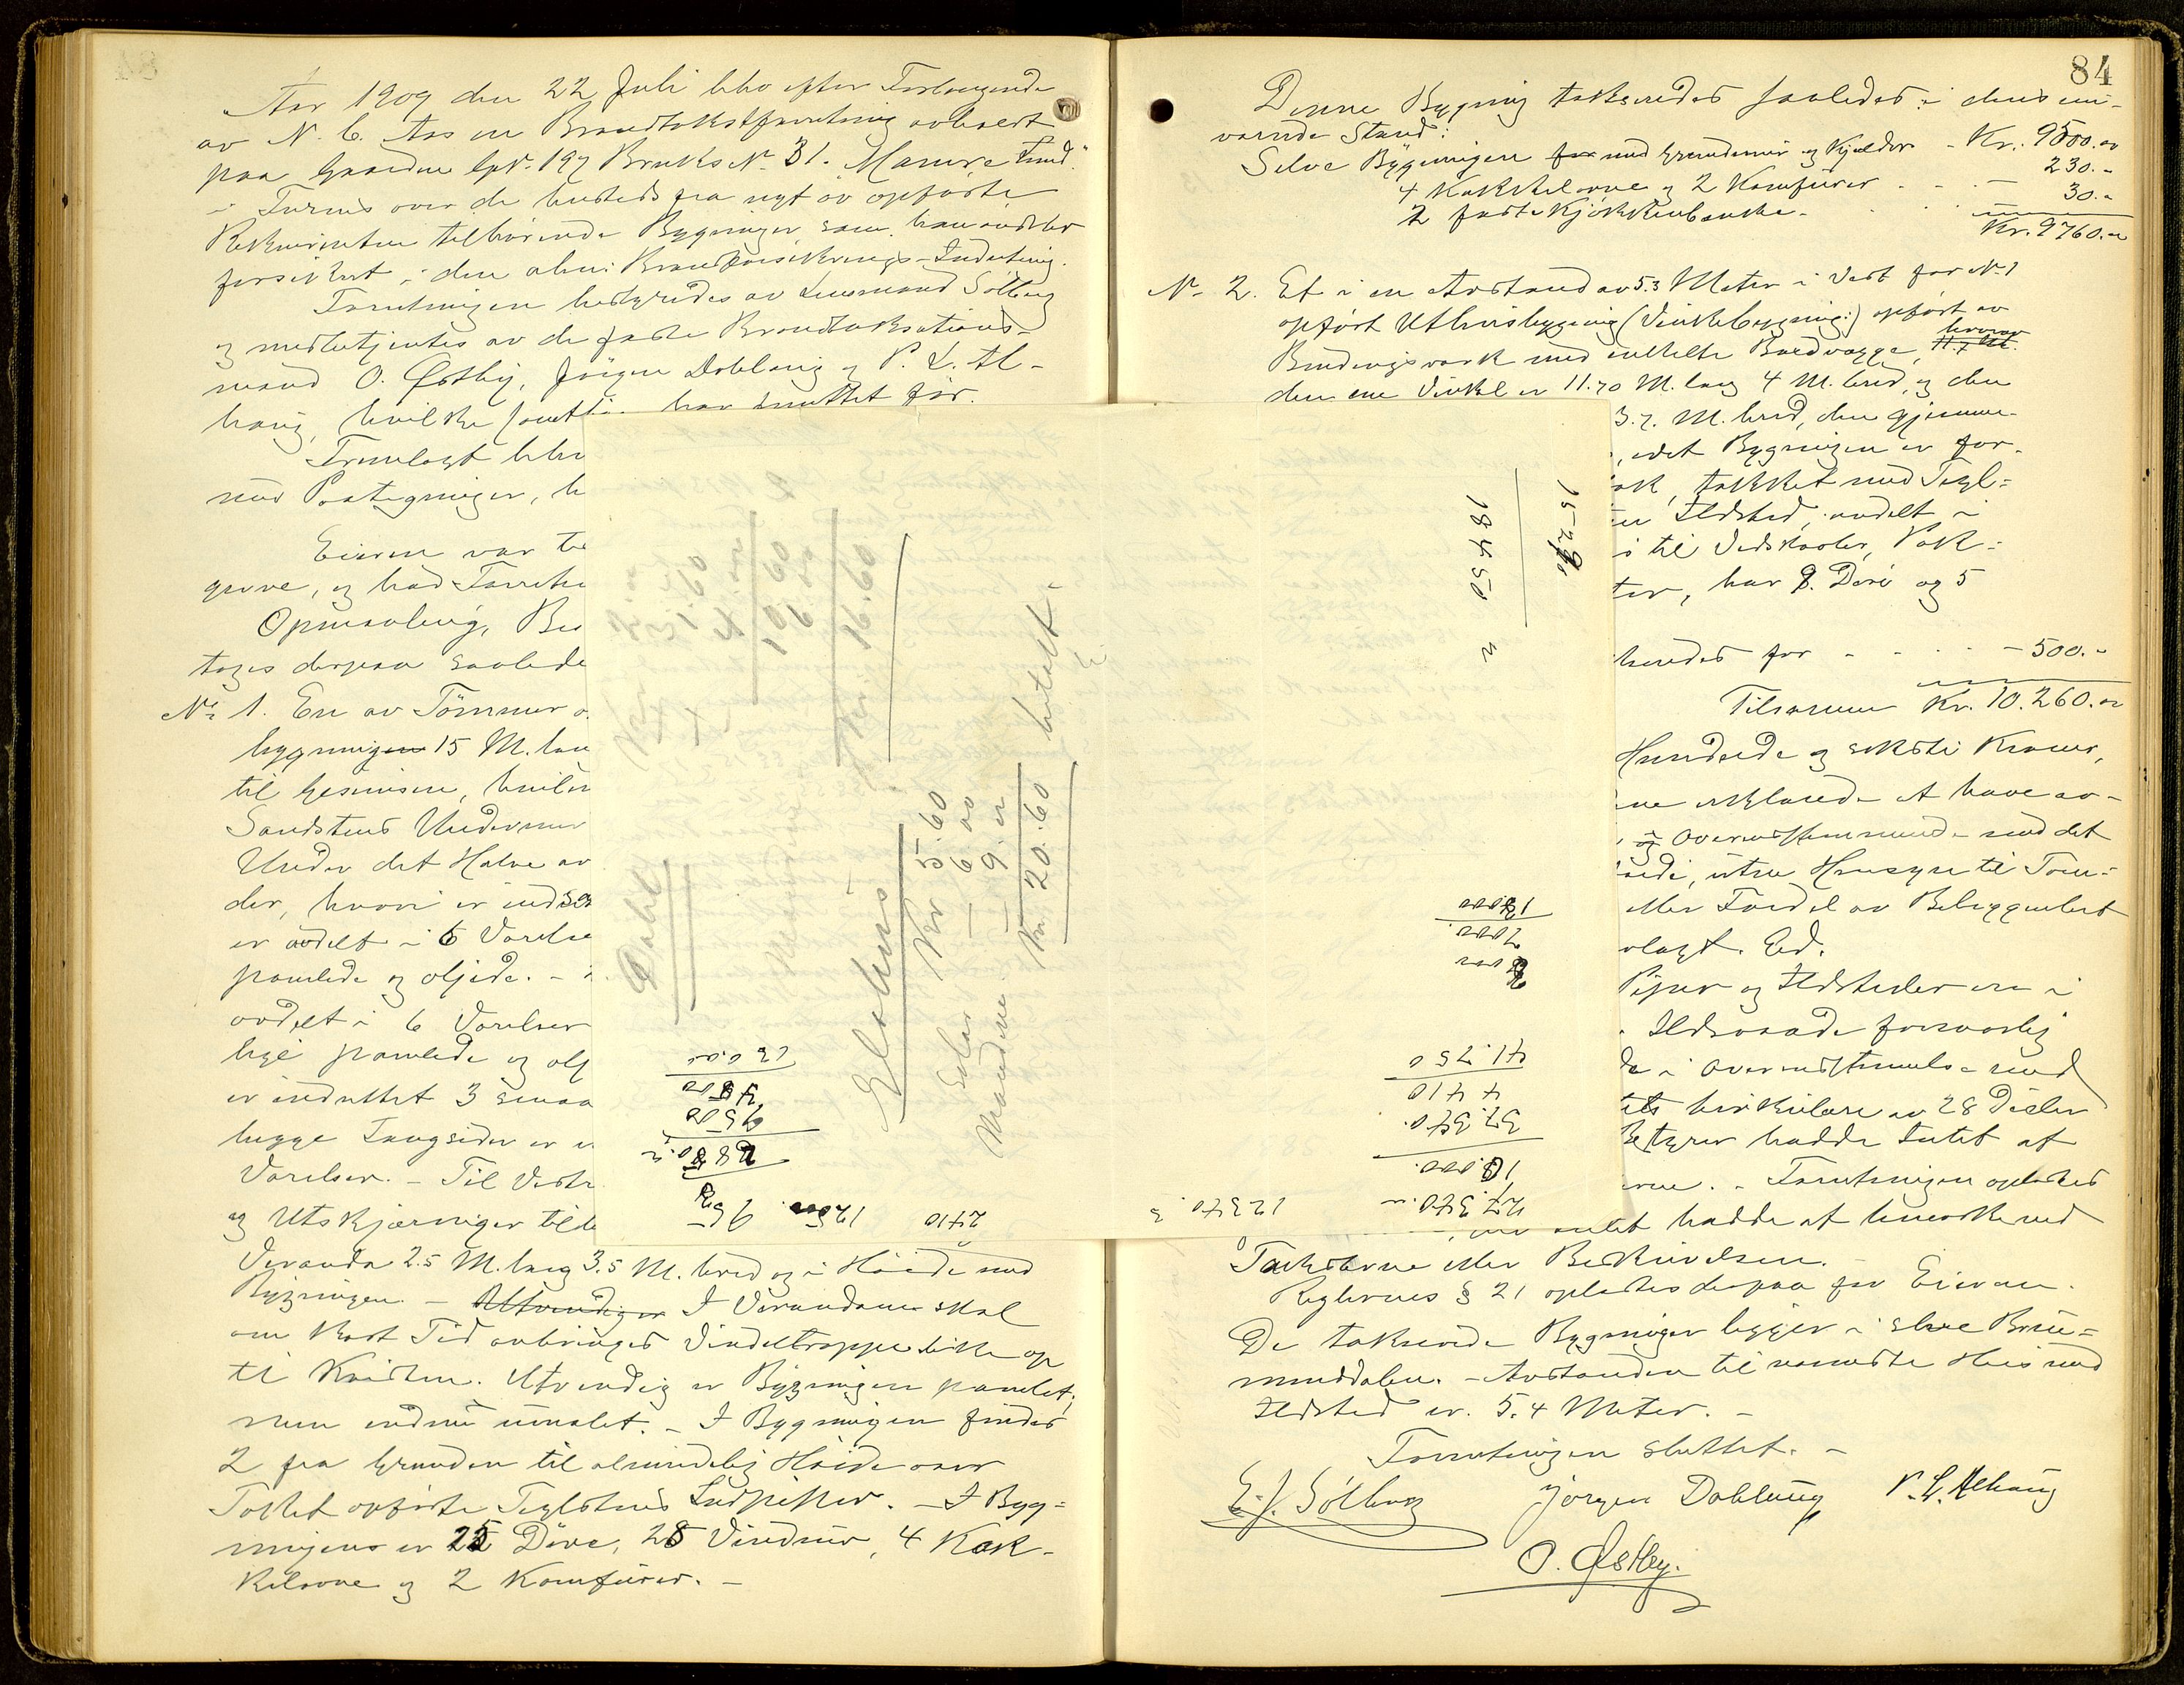 Aar 1909 den 22 Juli blev efter Forlangende
av N. C. Aas en Brandtakstforretning avholdt
paa Gaarden Gr. 197 Bruks No 31.
i Furnes over de hersteds fra nyt av opførte
Rekvirenten tilhørende Bygninger som han ønsker
forsikret i den alm: Brandforsikrings-Indretning.
Forretningen bestyredes av Lensmand Sölberg
og medbetjentes av de faste Brandtaksations-
mænd O. Østby, Jörgen Dobloug og P. L. Al-
haug, hvilke samtl har avsluttet før.
Fremlagt blev
med Paategninger, b
Eieren var til
grove, og bad Forretn
Opmaaling, Bes
toges derpaa saalede
No 1. En av Tømmer o
bygningen 15 M. lan
til Gesimsen, hvilen
Sandstens Undermur
Under det Halve av
der, hvori er indsa
er avdelt i 6 Værelse
panelede og oljede. -
avdelt i 6 Værelser
lige panelede og olj
er indrettet 3 smaa
begge Langsider er
Værelser. - Til Vestr
og Utskjæringer tilb
Veranda 2.5 M. lang 3.5 M. bred og i Høide med
Bygningen. - Utvendigen I Verandaen skal
om kort Tid anbringes Vindeltrappe like op
til Kvisten. Utvendig er Bygningen panelet,
men endnu umalet. - I Bygningen findes
2 fra Grunden til almindelig Høide over
Taket opførte Teglstens Ildpiper. - I Byg-
ningens er 25 Døre, 28 Vinduer, 4 Kak-
kelovne og 2 Komfurer. -
84
Denne Bygning takseredes saaledes i dens nu-
værende Stand:
Selve Bygningen for med Grundmur og Kjælder - Kr. 9500.00
4 Kakkelovne og 2 Komfurer - 230.-
2 faste Kjøkkenbænke - 30.-
Kr. 9760.-
No 2. Et i en Avstand av 5.3 Meter i Vest for No 1
opført Uthusbygning (Vinkelbygning:) opført av
Bindingsverk med enkelte Bordvægge, hvorav
den ene Vinkel er 11.70 M. lang 4 M. bred, og den
3.7. M. bred, den gjennem-
, idet Bygningen er for-
ak, tækket med Tegl-
en Ildsted, avdelt i
i til Vedskaaler, Pak-
ter, har 8. Döre og 5
seredes for - - - 500.-
Tilsammen Kr. 10.260.00
Hundrede og seksti Kroner,
ne erklærede at have av-
og Overensstemmende med det
ærdi, uten Hensyn til Tom-
eller Fordel av Beliggenhet
vlagt. Ed.
Piper og Ildsteder ere i
Ildsvaade forsvarlig
de i Overensstemmelse med
tets Cirkulære av 28 Desbr
Bestyrer hadde Intet at
erne. - Forretningen oplæstes
intet hadde at bemærke ved
Taksterne eller Beskrivelsen. -
Reglernes § 21 oplæstes derpaa for Eieren.
De takserede Bygninger ligger i selve Brum-
munddalen. - Avstanden til nærmeste Hus med
Ildsted er 5.4 Meter. -
Forretningen sluttet. -
E. J. Sölberg
Jörgen Dobloug
P. L. Alhaug
O. Østby.
Kr 5.60
- 6.00
- 9.00
Kr. 20.60 betalt.
18450
12000
2000
41.750
4410
37.340
10.000
27.340
12340
9500
2410